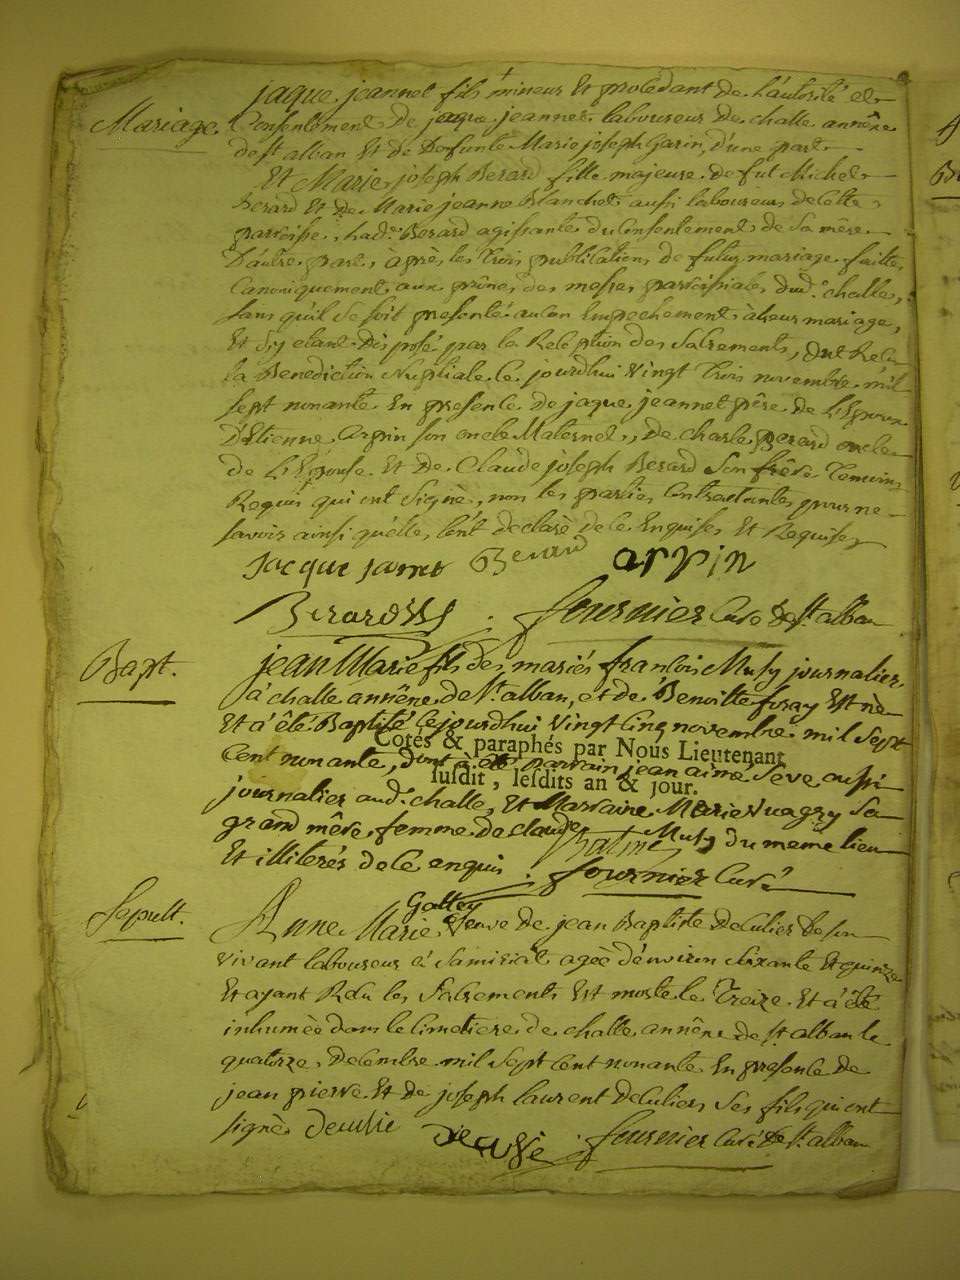 Mariage.
jaque jeannet fils mineur Et procedant de L'autorité et
Consentement De jaque jeannet laboureur de challe annêxe
de st alban Et de Defunte Marie joseph Garin, d'une part
Et Marie joseph Berard fille majeure de fut Michel
Berard Et de Marie jeanne Blanchet aussi laboureur de Cette
parroisse, lad.e Berard agissante du Consentement de Sa mère
D'autre part, après les trois publications de futur mariage faittes
Canoniquement aux prônes des messes parroissiales dud.t challes,
sans qu'il Se soit presenté aucun Empechement à leur mariage,
Et S'y etant Disposé par la Reception des Sacrements, ont Recu
la Benediction Nuptiale ce jourdhui vingt trois novembre mil
sept nonante En presence de jaque jeannet père de L'Epoux
D'Etienne Arpin son oncle Maternel, de charle Berard oncle
de L'Epouse Et de Claude joseph Berard Son frère Temoins
Requis qui ont Signé, non les parties Contractantes pour ne
savoir ainsi qu'elles l'ont declaré de ce Enquises Et Requises
jacque janet Berard arpin
Berard
fournier Curé de St. alban
Bapt.
jean Marie fils des mariés francois Musy journalier
à challe annêxe de St. alban, et de Benoitte furay Est nè
Et a êté Baptisé cejourdhui vingt Cinq novembre mil Sept
Cotés & paraphés par Nous Lieutenant
Cent nonante, dont à été parrain jean aimé Seve aussi
susdit, lesdits an & jour.
journalier aud.t challe, Et Marraine Marie Vuagry Sa
grand mêre femme de claude Musy du meme lieu
Et illiterés de ce enquis. fournier Curé
Sepult.
Gottey
Anne Marie Veuve de jean Baptiste Deculier de son
vivant laboureur à Samisiat agée d'environ Soixante Et quinze
Et ayant Recu les Sacrements Est morte le Treize Et a été
inhumée dans le Cimetiere de challe annêxe de St. alban le
quatorze Decembre mil Sept Cent nonante En presence de
jean pierre Et de joseph laurent Deculier Ses fils qui ont
signé
fournier Curé de St. alban